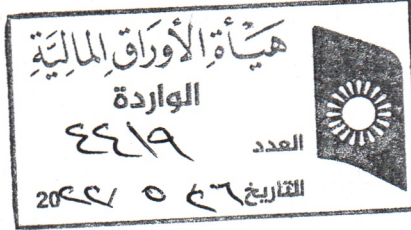 هَيْأَةُ الْأَوْرَاقِ الْمَالِيَّةِ
الواردة
العدد ٤٤١٩
التاريخ ٢٦ ٥ / 20٢٢